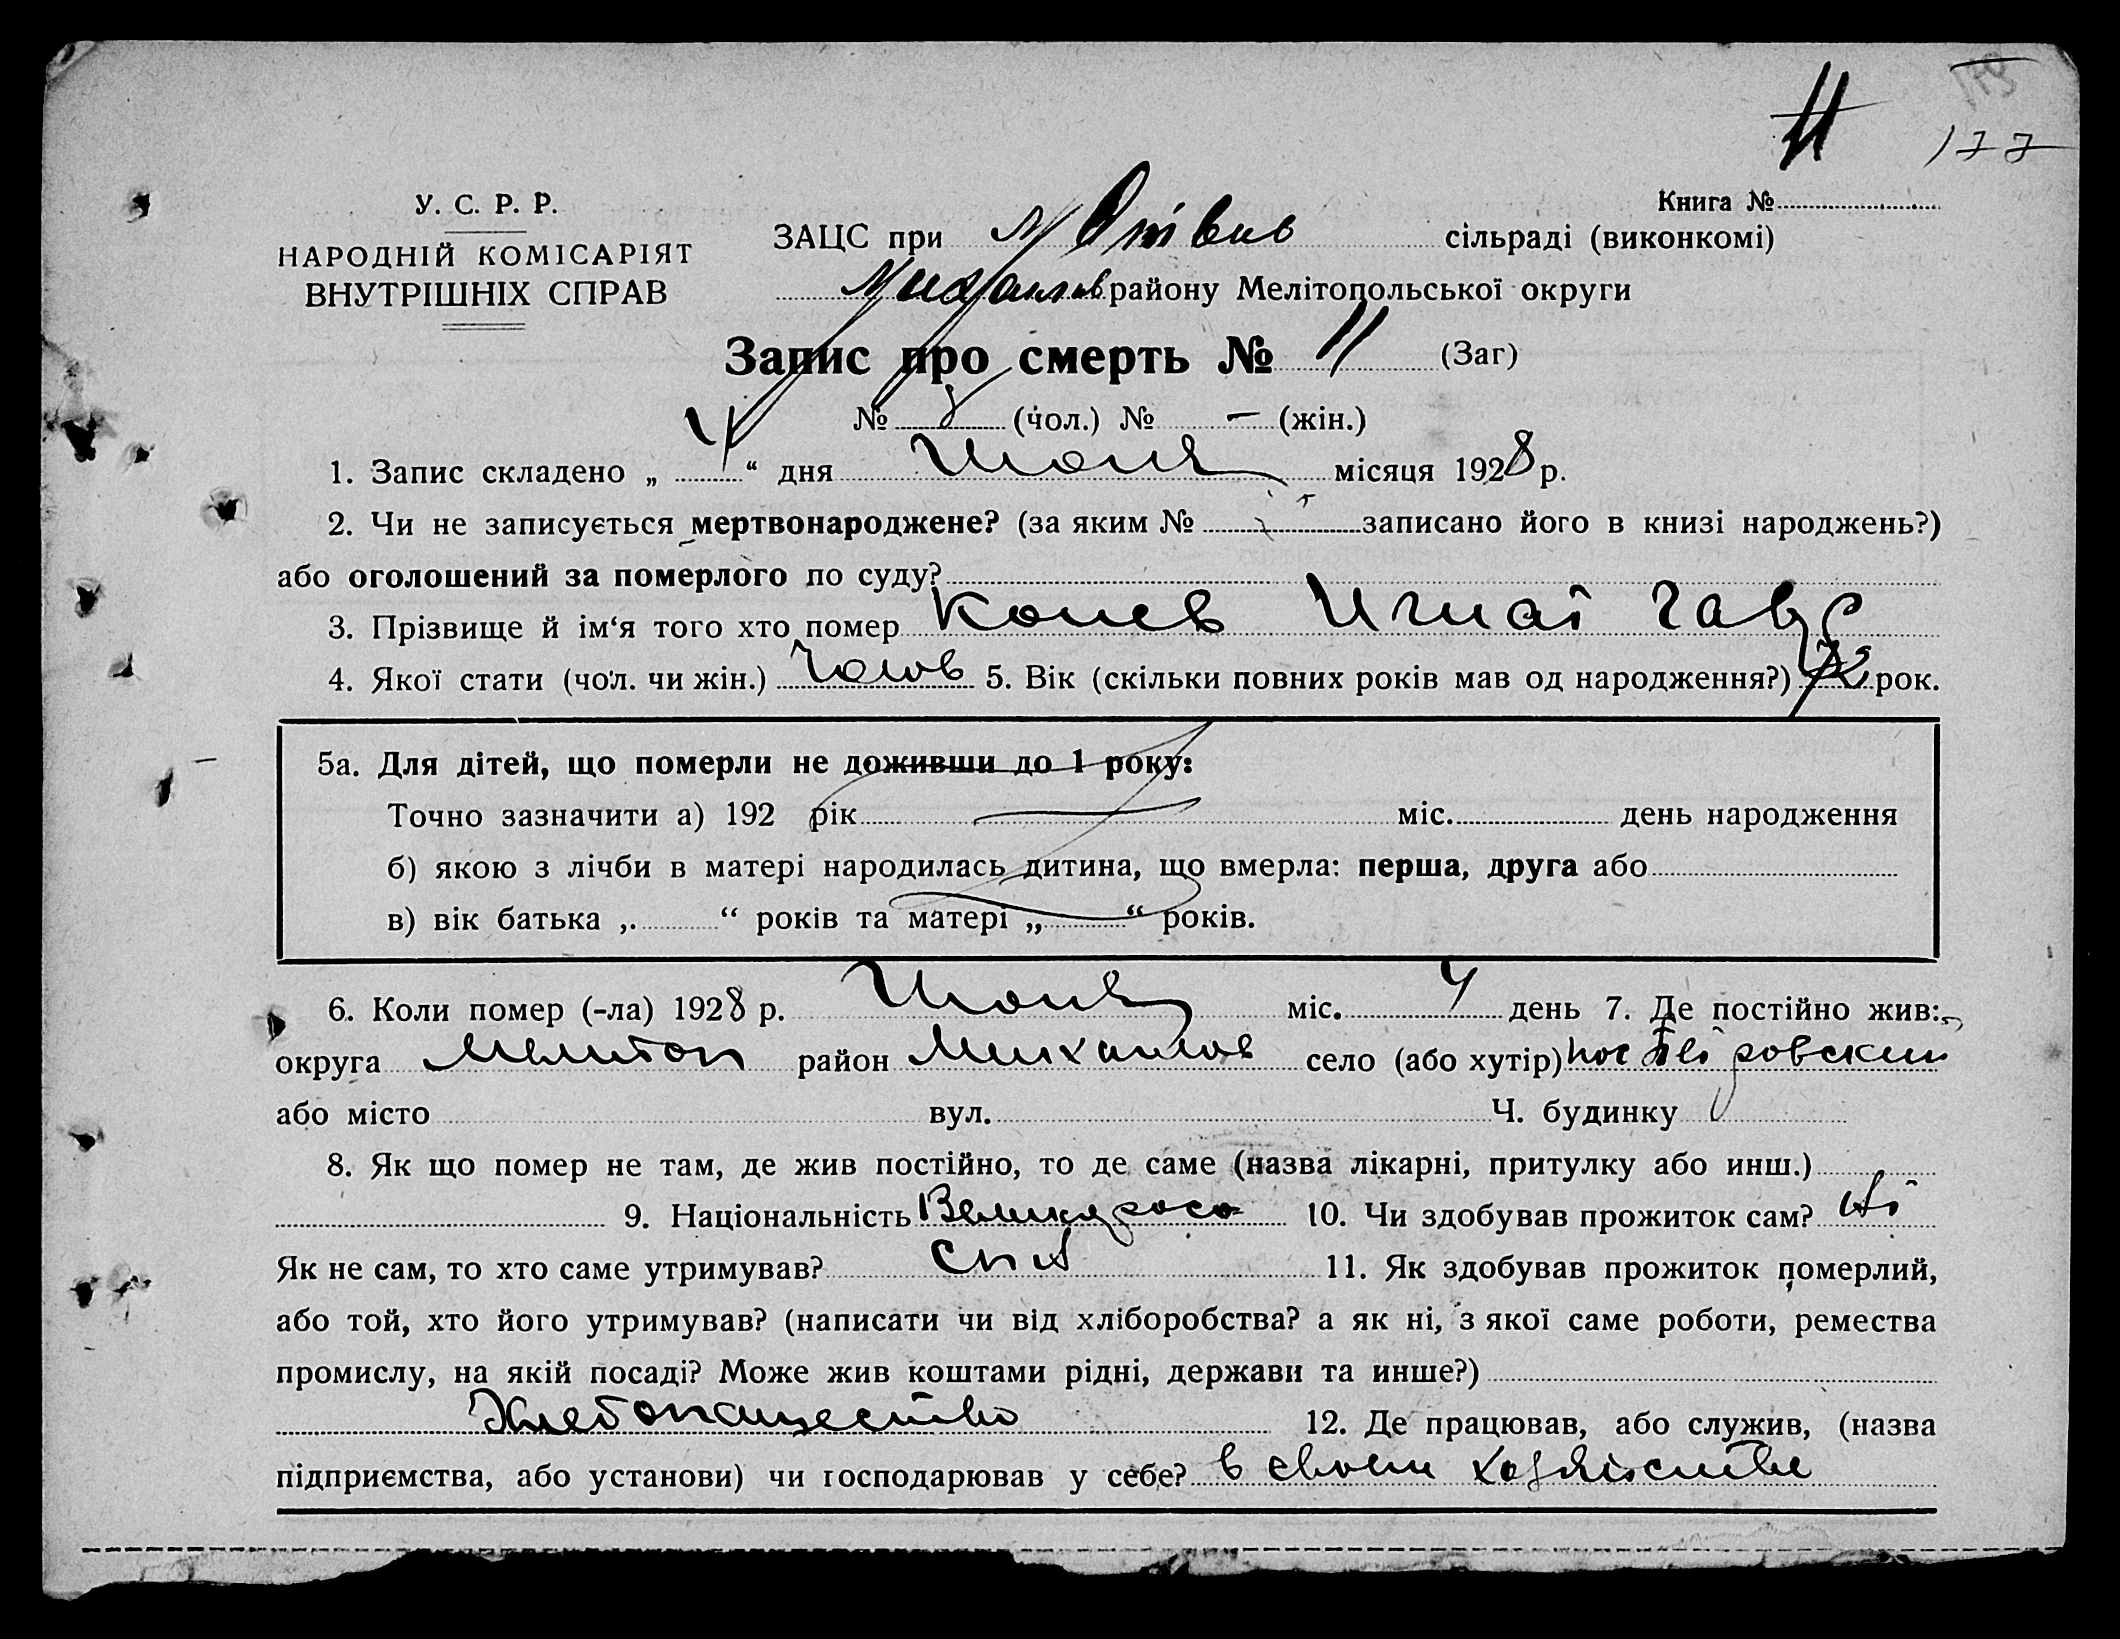 11
177
У. С. Р. Р.
НАРОДНІЙ КОМІСАРІЯТ
ВНУТРІШНІХ СПРАВ
Книга №
ЗАЦС при сільраді (виконкомі)
Михайлов району Мелітопольської округи
Запис про смерть № 11 (Заг)
№ 8 (чол.) № – (жін.)
1. Запис складено „ 4 “ дня Июня місяця 1928 р.
2. Чи не записується мертвонароджене? (за яким № записано його в книзі народжень?)
або оголошений за померлого по суду?
3. Прізвище й ім‘я того хто помер Конев Игнат Гавр
4. Якої стати (чол. чи жін.) Чолов 5. Вік (скільки повних років мав од народження?) 72 рок.
5а. Для дітей, що померли не доживши до 1 року:
Точно зазначити а) 192 рік міс. день народження
б) якою з лічби в матері народилась дитина, що вмерла: перша, друга або
в) вік батька „ “ років та матері „ “ років.
6. Коли помер (-ла) 1928 р. Июня міс. 4 день 7. Де постійно жив:
округа Мелитоп район Михайлов село (або хутір)
або місто вул. Ч. будинку
8. Як що помер не там, де жив постійно, то де саме (назва лікарні, притулку або инш.)
9. Національність Великорос 10. Чи здобував прожиток сам? Ні
Як не сам, то хто саме утримував? Син 11. Як здобував прожиток померлий,
або той, хто його утримував? (написати чи від хліборобства? а як ні, з якої саме роботи, ремества
промислу, на якій посаді? Може жив коштами рідні, держави та инше?)
Хлебопашество 12. Де працював, або служив, (назва
підприємства, або установи) чи господарював у себе? в своем хозяйстве